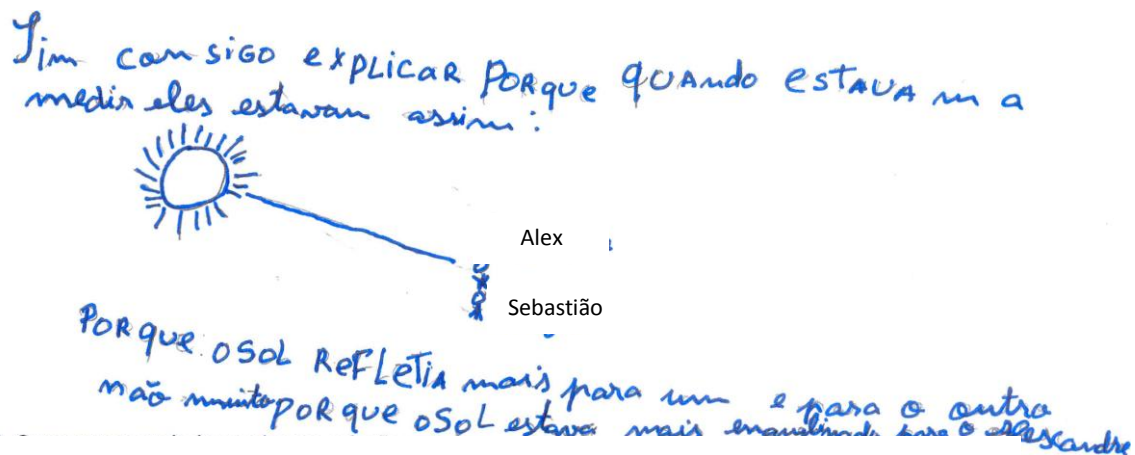 Sim consigo explicar porque quando estavam a
medir eles estavam assim:
Alex
Sebastião
Porque o sol refletia mais para um e para o outro
não muito porque o sol estava mais enquilinado para o Alescandre